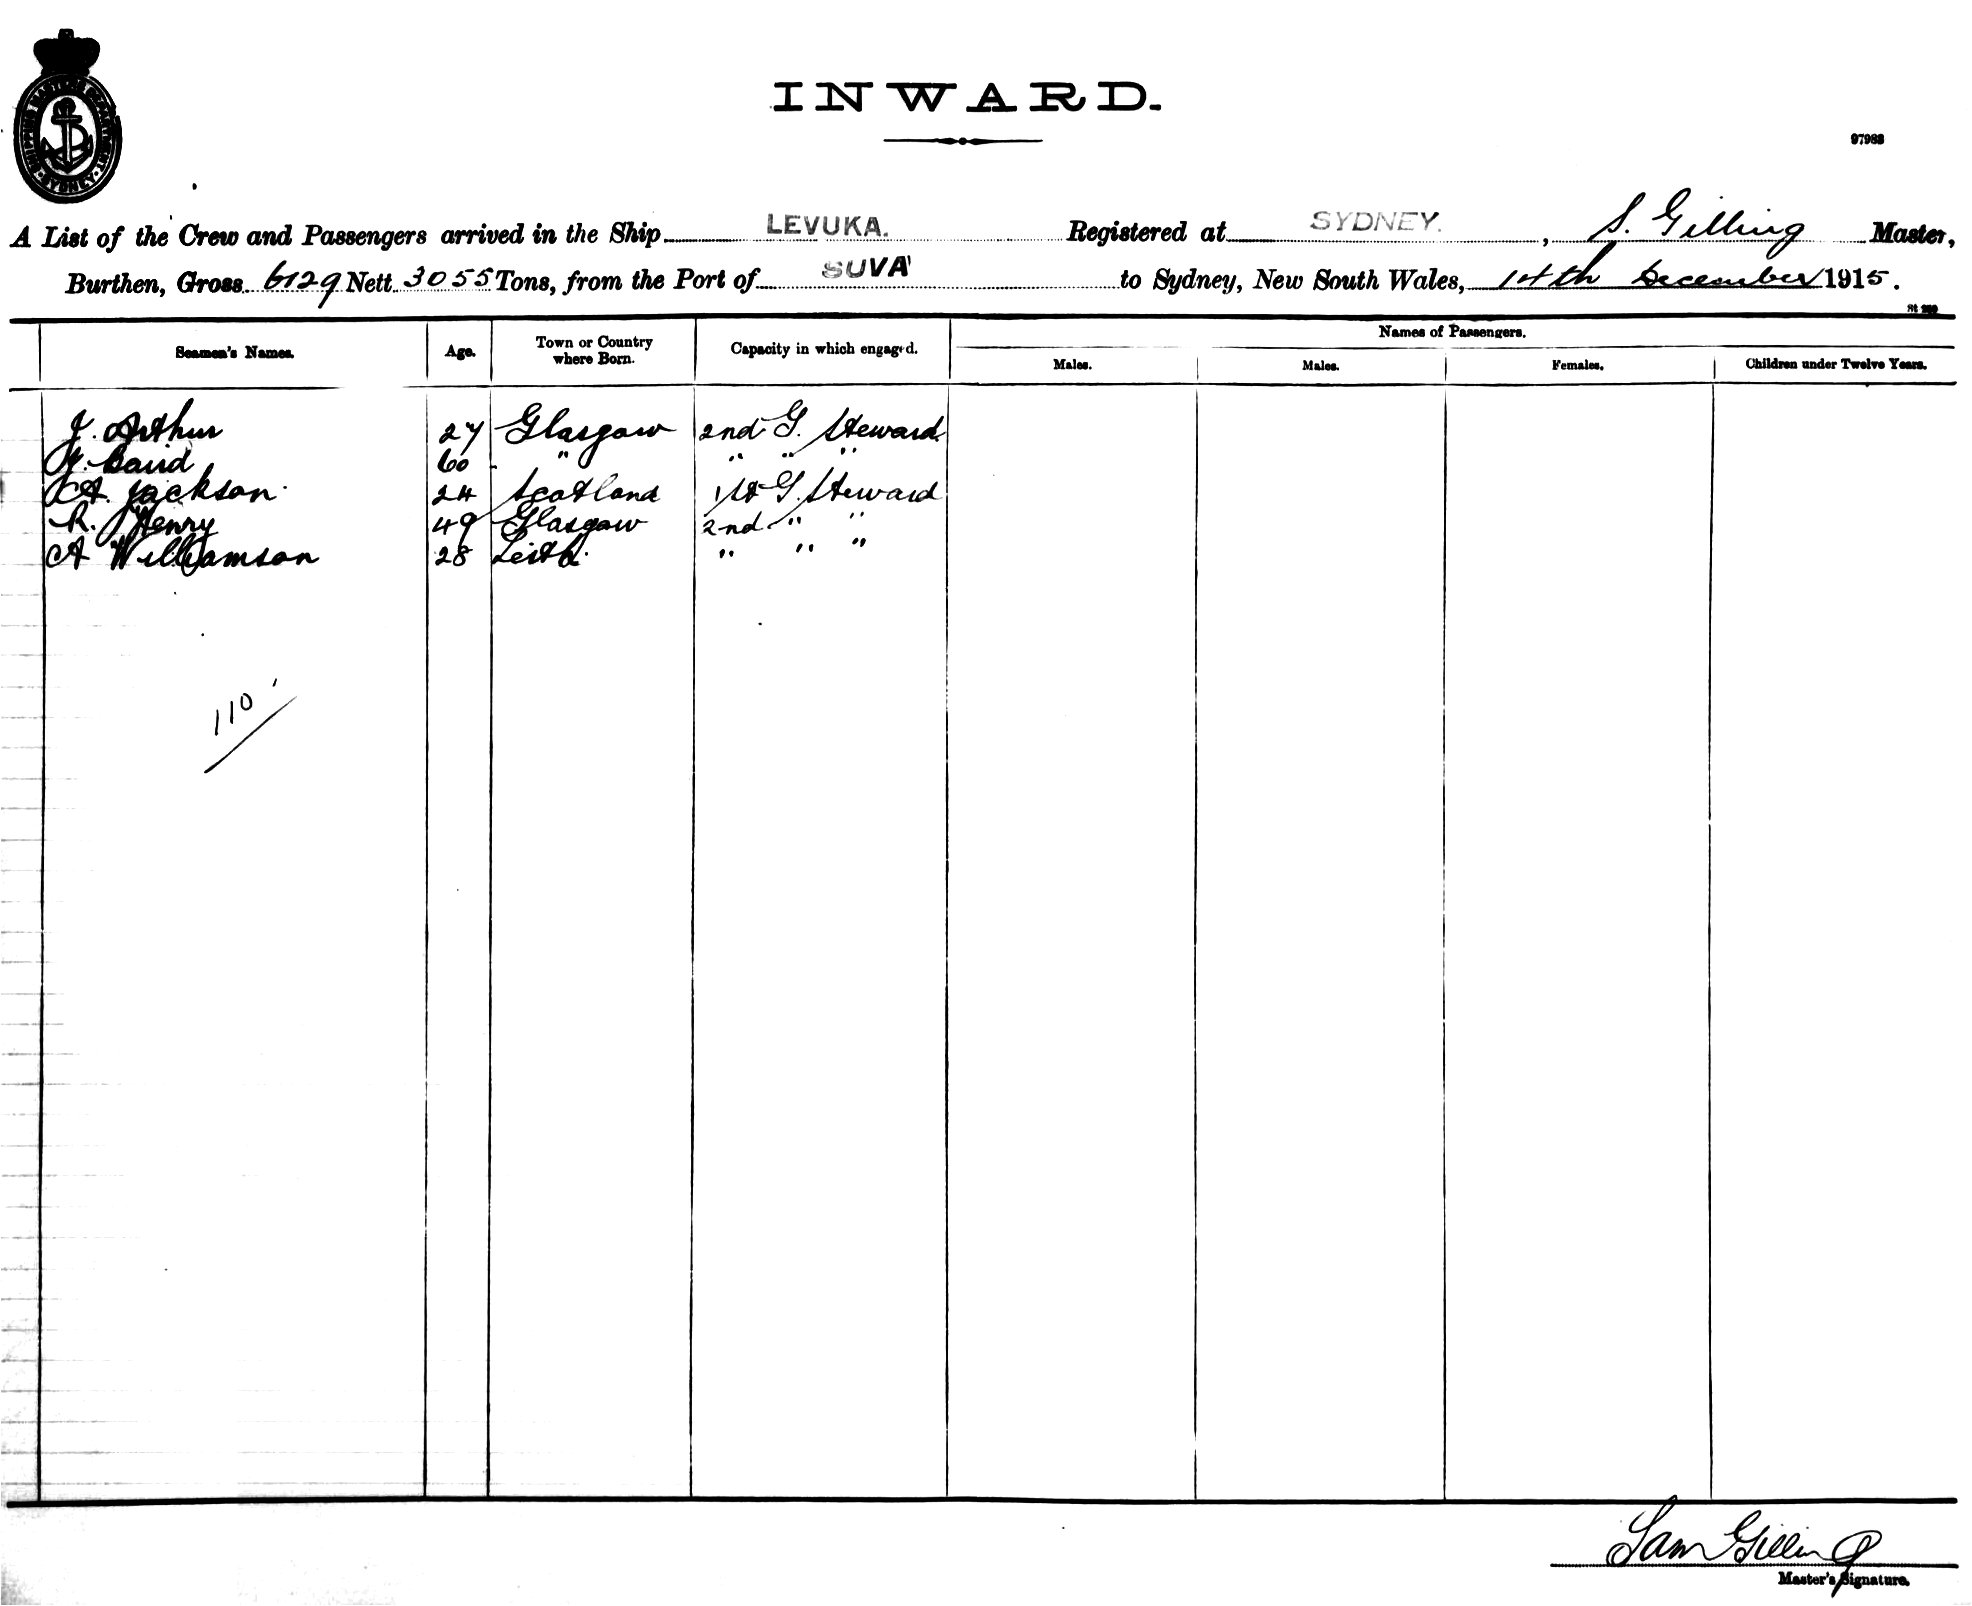 SHIPPING MASTER'S DEPARTMENT
SYDNEY
INWARD.
97983
A List of the Crew and Passengers arrived in the Ship LEVUKA. Registered at SYDNEY. , S. Gilling Master,
Burthen, Gross 6129 Nett 3055 Tons, from the Port of SUVA to Sydney, New South Wales, 14th December 1915.
Seamen's Names. Age. Town or Country where Born. Capacity in which engaged. Names of Passengers.
Males. Males. Females. Children under Twelve Years.
J. Arthur 27 Glasgow 2nd G. Steward
Baird 60 " " " "
A. Jackson 24 Scotland 1st G. Steward
R. Henry 49 Glasgow 2nd " "
A Williamson 28 Leith. " " "
110
Sam Gilling
Master's Signature.